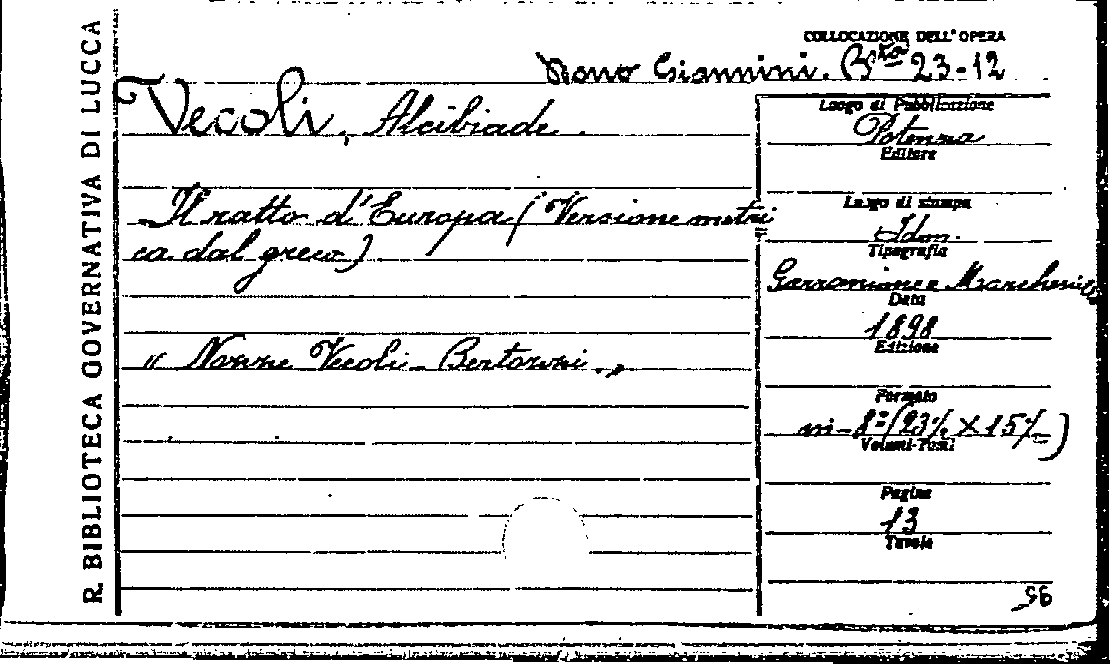 R. BIBLIOTECA GOVERNATIVA DI LUCCA
COLLOCAZIONE DELL'OPERA
Dono Giannini. Bta 23-12
Vecoli, Alcibiade.
Il ratto d'Europa (Versione metri
ca dal greco)
« Nozze Vecoli - Bertozzi. »
Luogo di Pubblicazione
Potenza
Editore
Luogo di stampa
Idem.
Tipografia
Garramone e Marchesiello
Data
1898
Edizione
Formato
in-8º (23% X 15%)
Volumi-Tomi
Pagine
13
Tavole